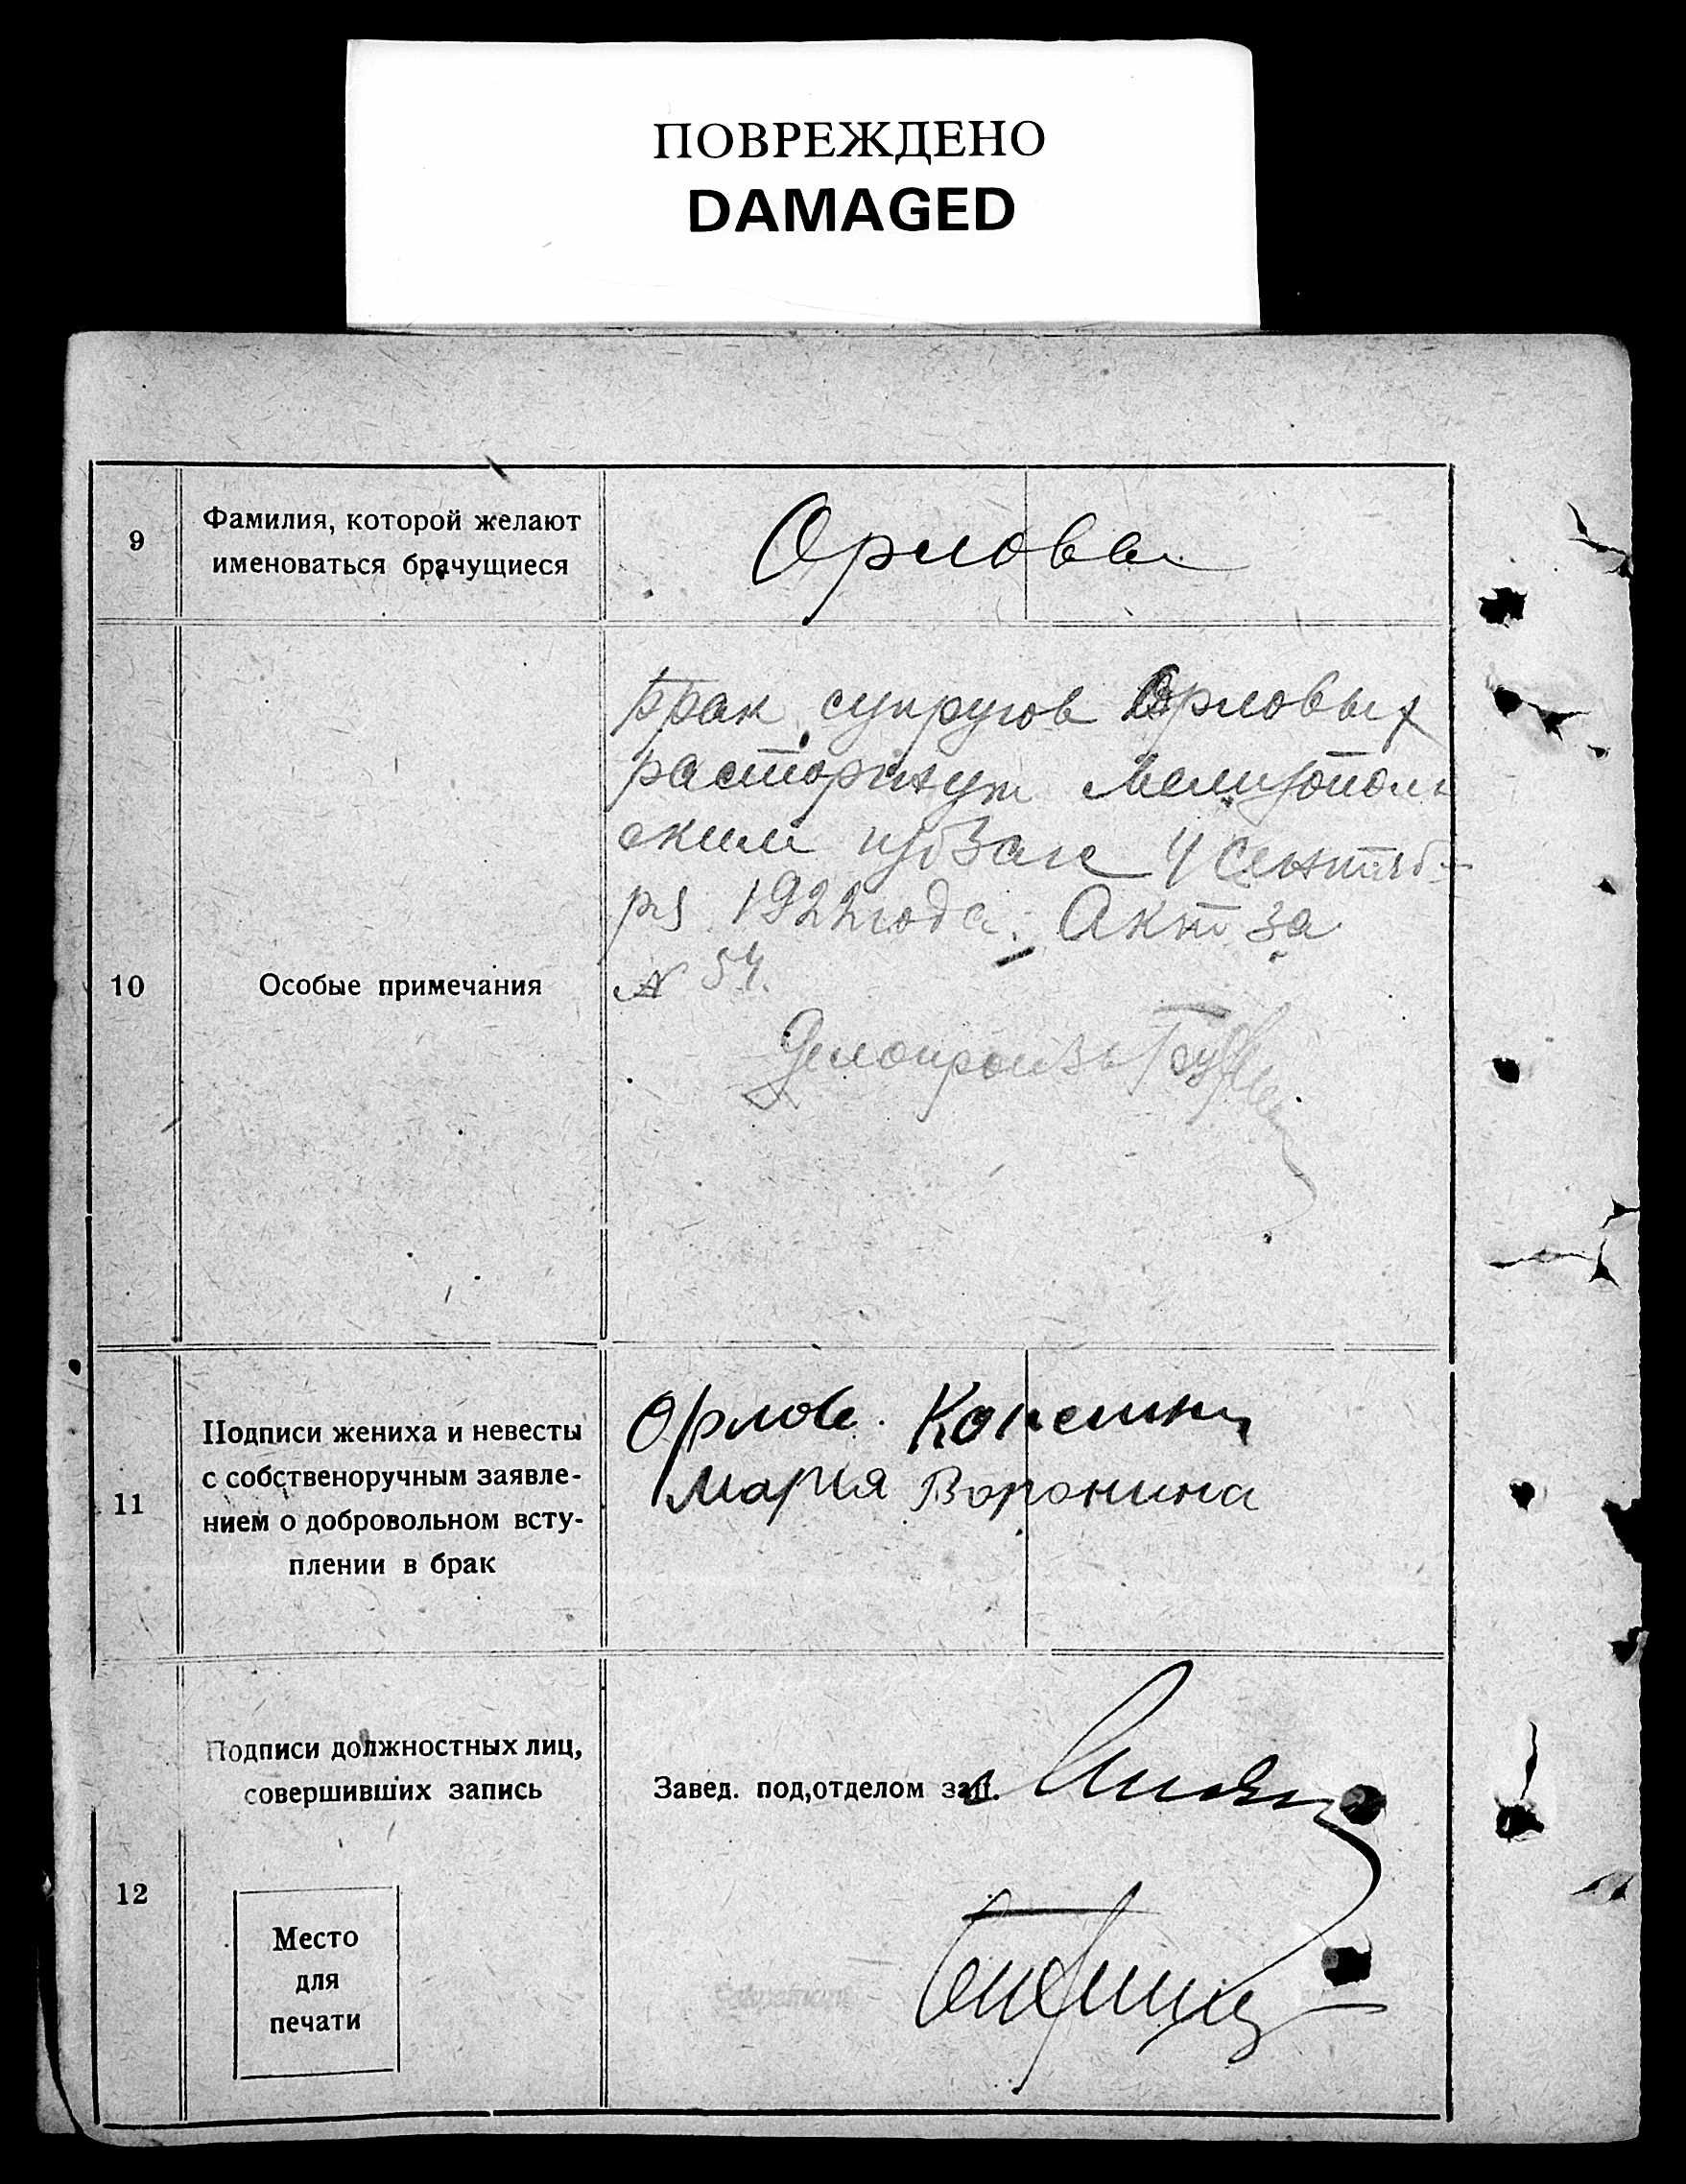 ПОВРЕЖДЕНО
DAMAGED
9
Фамилия, которой желают
именоваться брачущиеся
Орловы
10
Особые примечания
Брак супругов Орловых
расторгнут Мелитополь
ским 4 сентяб-
ря 1922 года. Акт за
№ 54.
Делопроизв
11
Подписи жениха и невесты
с собственоручным заявле-
нием о добровольном всту-
плении в брак
Орлов.
Мария Воронина
12
Подписи должностных лиц,
совершивших запись
Завед. под,отделом зап.
Место
для
печати